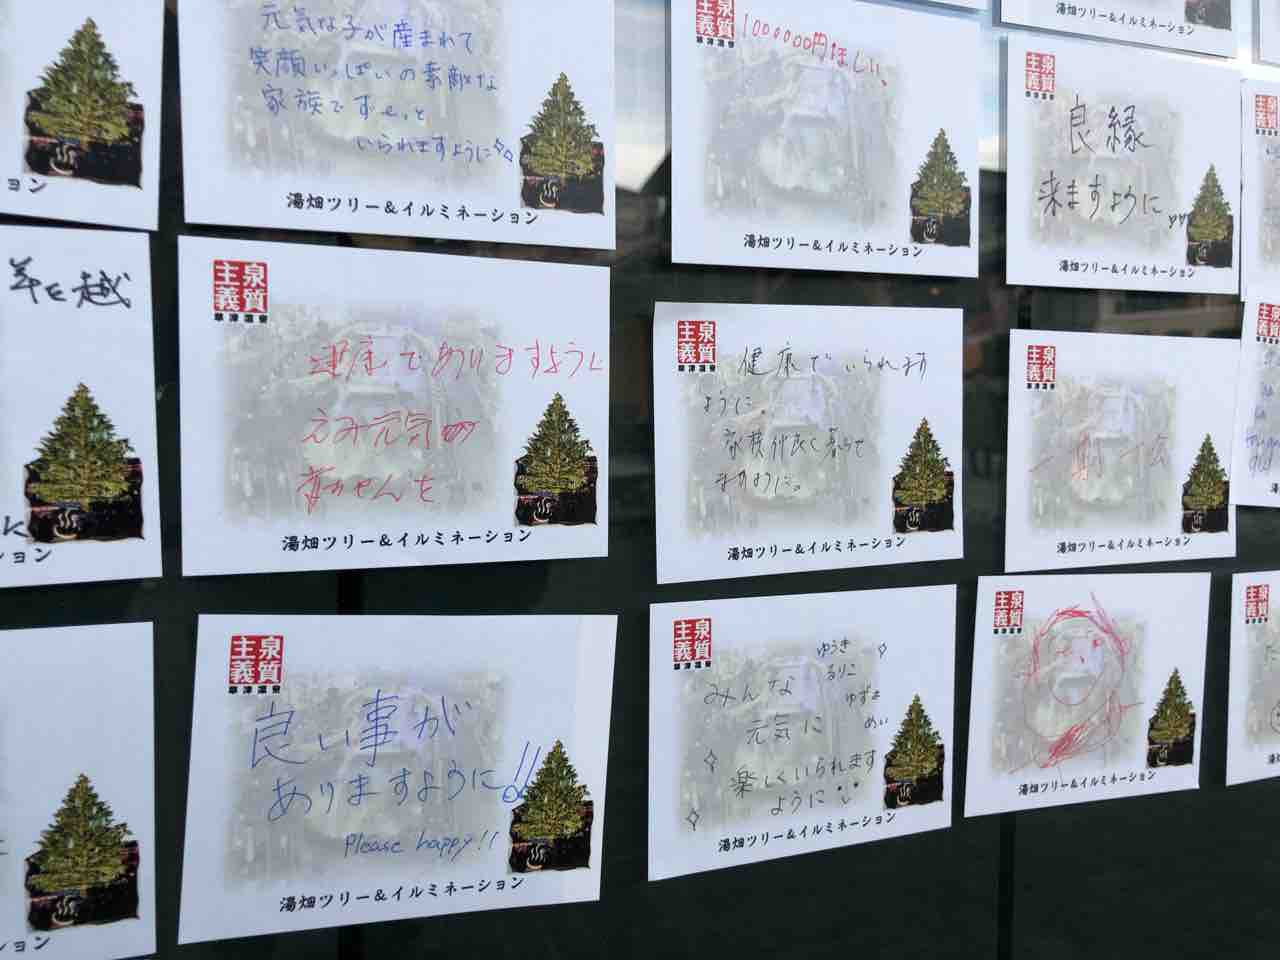 元気な子が産まれて
笑顔いっぱいの素敵な
家族でずーっと
いられますように
湯畑ツリー＆イルミネーション
主泉
義質
1000000円ほしい。
湯畑ツリー＆イルミネーション
主泉
義質
草津温泉
良縁
来ますように
湯畑ツリー＆イルミネーション
ョン
越
ョン
主泉
義質
草津温泉
でありますように
えみ元気
ちゃんを
湯畑ツリー＆イルミネーション
主泉
義質
草津温泉
健康でいられます
ように。
家族仲良く暮らせ
ますように。
湯畑ツリー＆イルミネーション
主泉
義質
草津温泉
一期一会
湯畑ツリー＆イルミネーション
主泉
義質
草津温泉
良い事が
ありますように!!
Please happy!!
湯畑ツリー＆イルミネーション
主泉
義質
草津温泉
みんな
元気に
楽しくいられます
ように
ゆうき
るりこ
ゆずき
めい
湯畑ツリー＆イルミネーション
主泉
義質
草津温泉
湯畑ツリー＆イルミネーション
湯畑ツリー＆イルミネーション
ョン